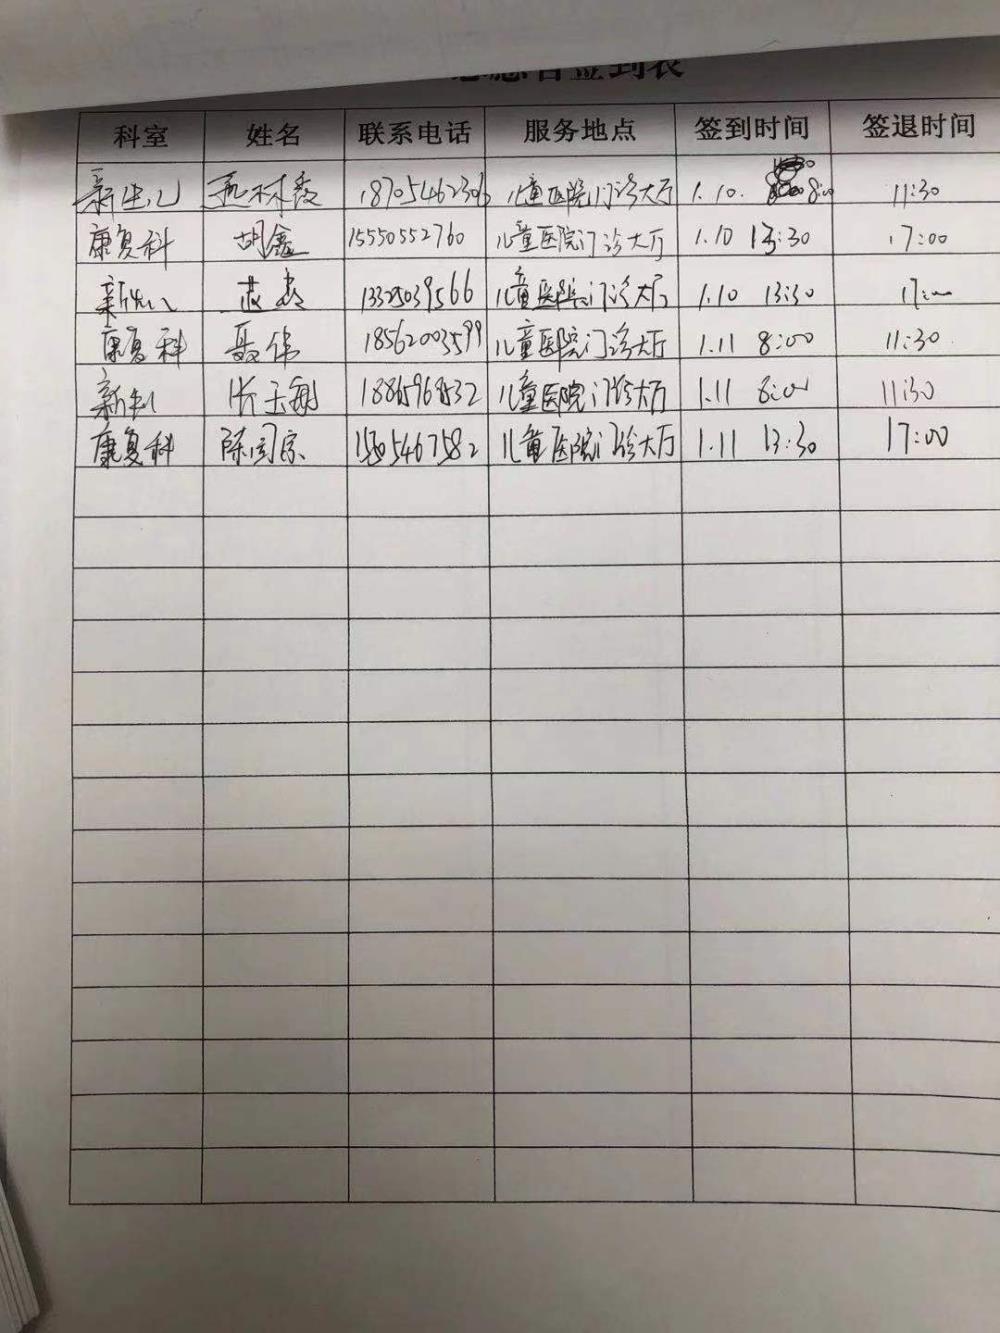 志愿者签到表
科室 姓名 联系电话 服务地点 签到时间 签退时间
新生儿 18705462306 儿童医院门诊大厅 1.10. 8:00 11:30
康复科 胡鑫 15550552760 儿童医院门诊大厅 1.10 13:30 17:00
新生儿 13325039566 儿童医院门诊大厅 1.10 13:30 17:00
康复科 聂伟 18562003599 儿童医院门诊大厅 1.11 8:00 11:30
新生儿 儿童医院门诊大厅 1.11 8:00 11:30
康复科 儿童医院门诊大厅 1.11 13:30 17:00